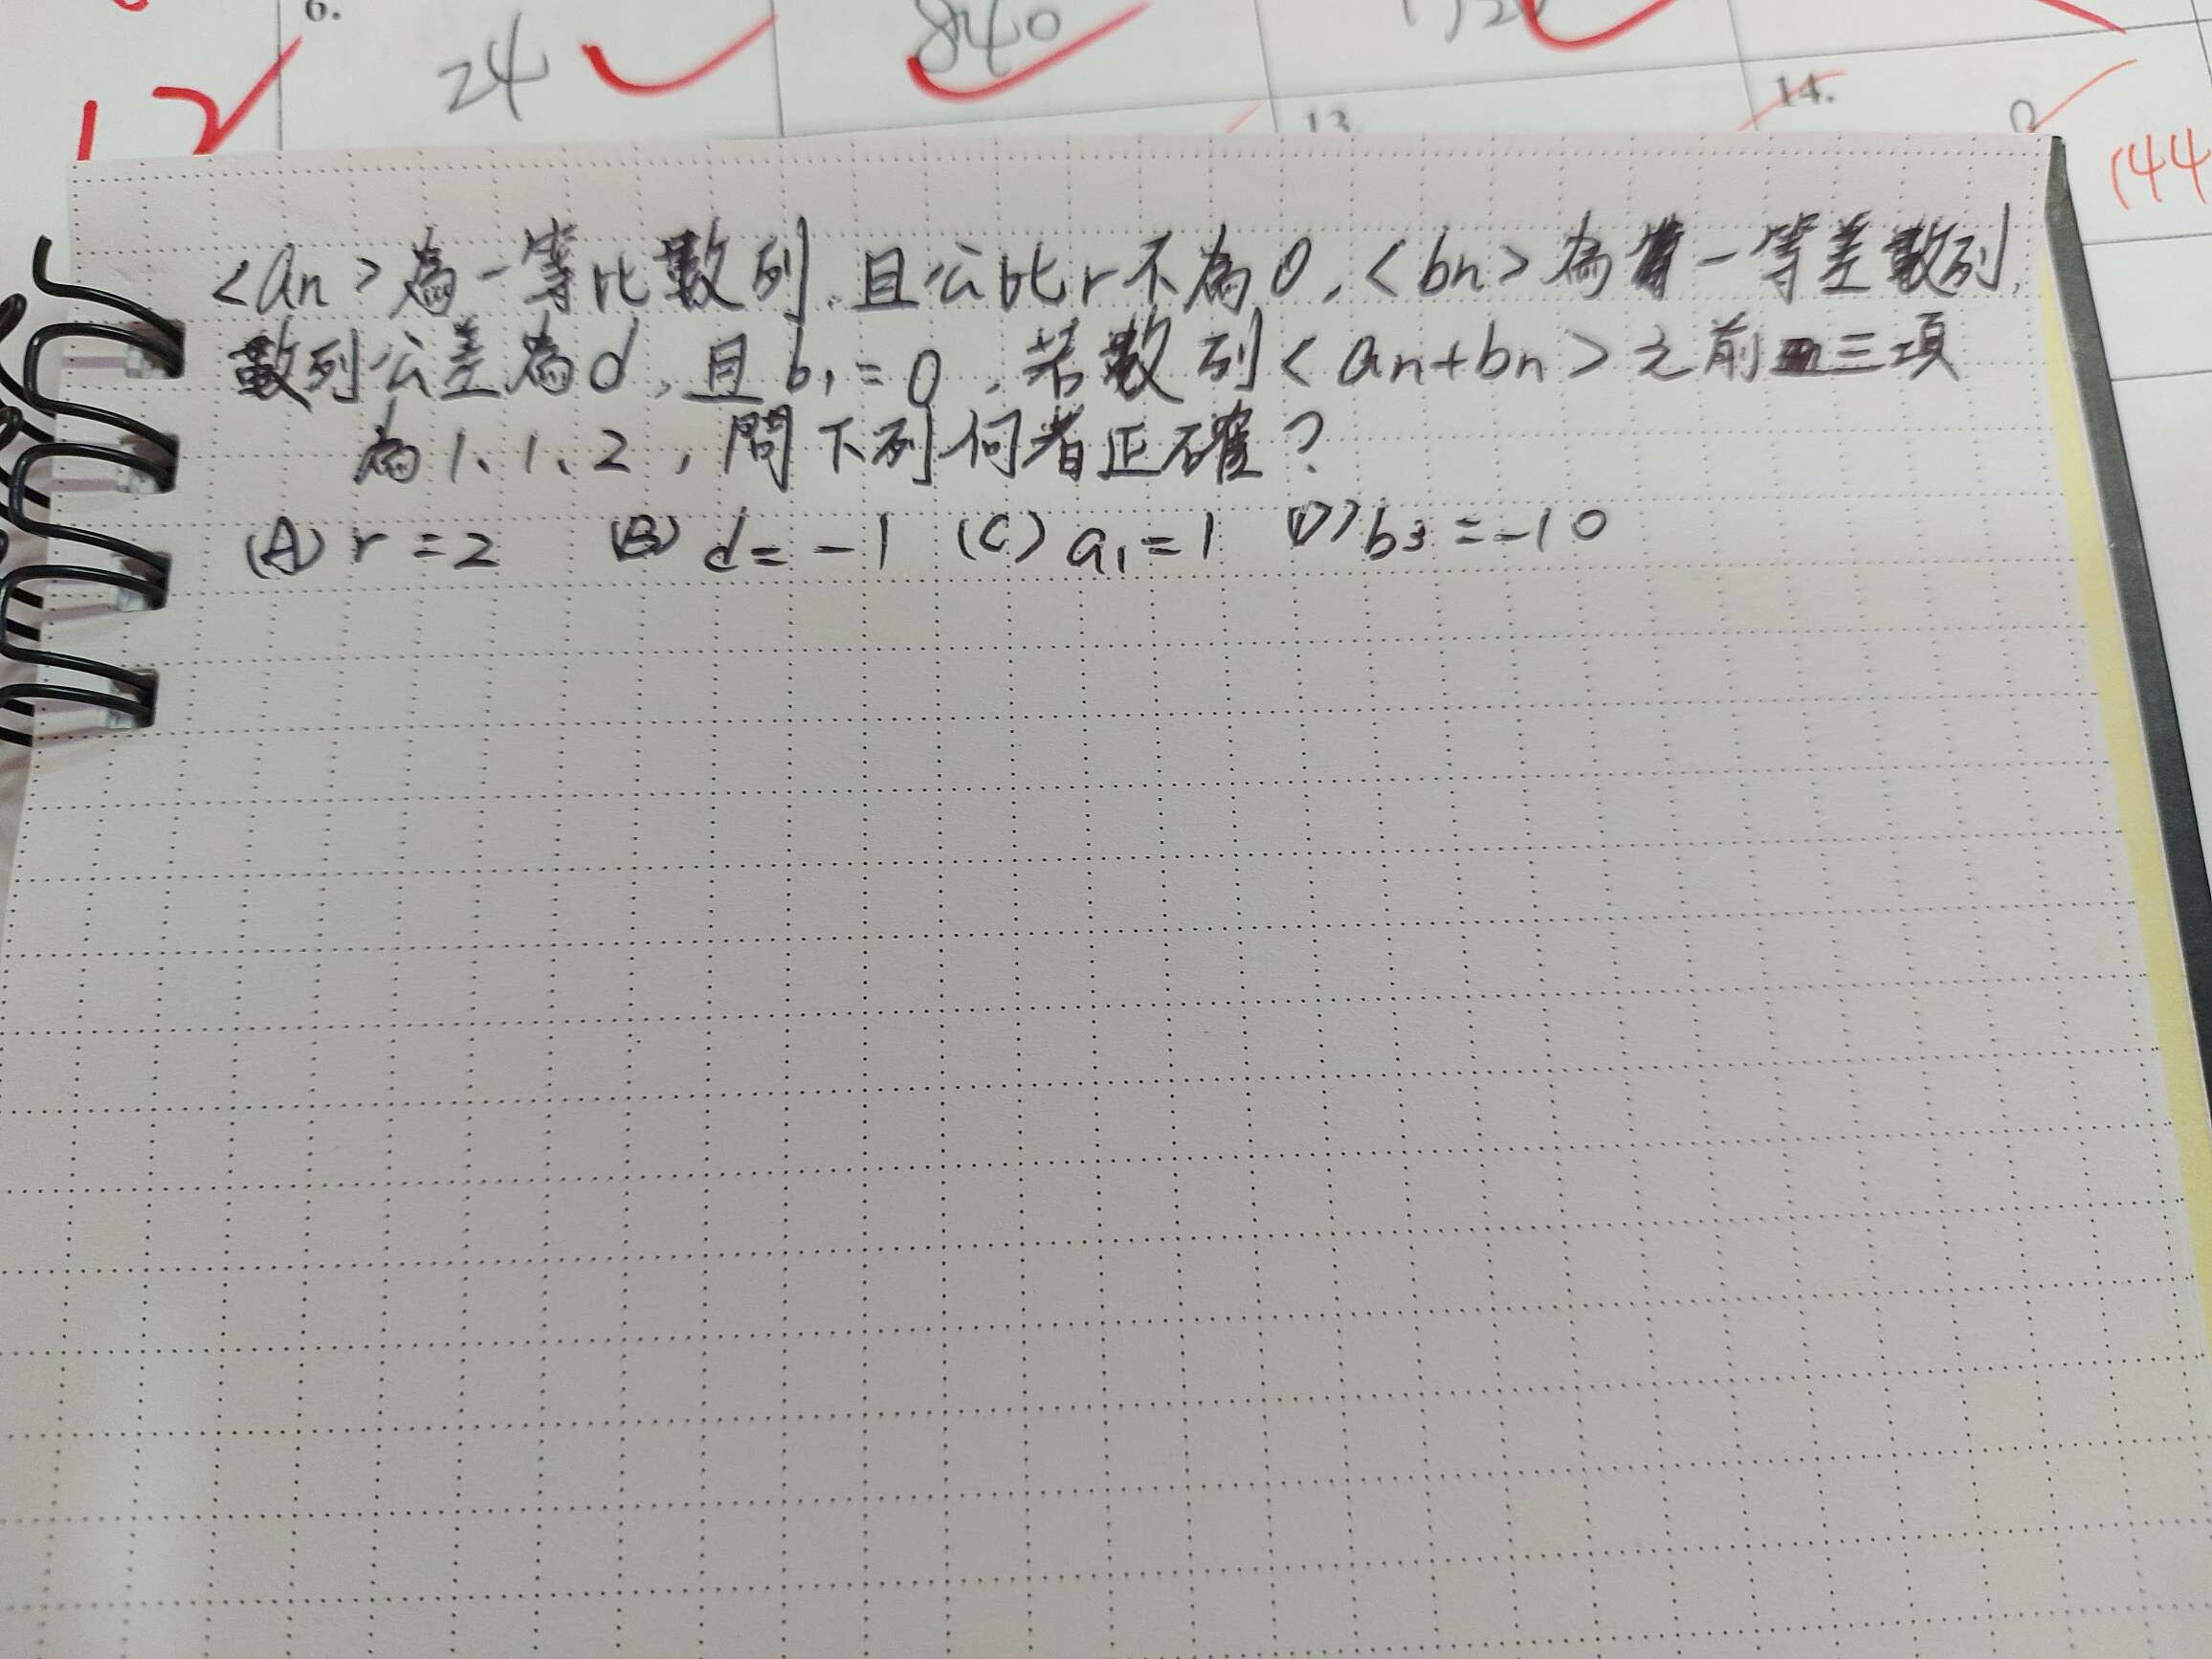 6.
24
840
12
13
14.
144
<an>為一等比數列,且公比r不為0,<bn>為一等差數列,
數列公差為d,且b₁=0,若數列<an+bn>之前三項
為1、1、2,問下列何者正確?
(A) r=2 (B) d=-1 (C) a₁=1 (D) b₃=-10